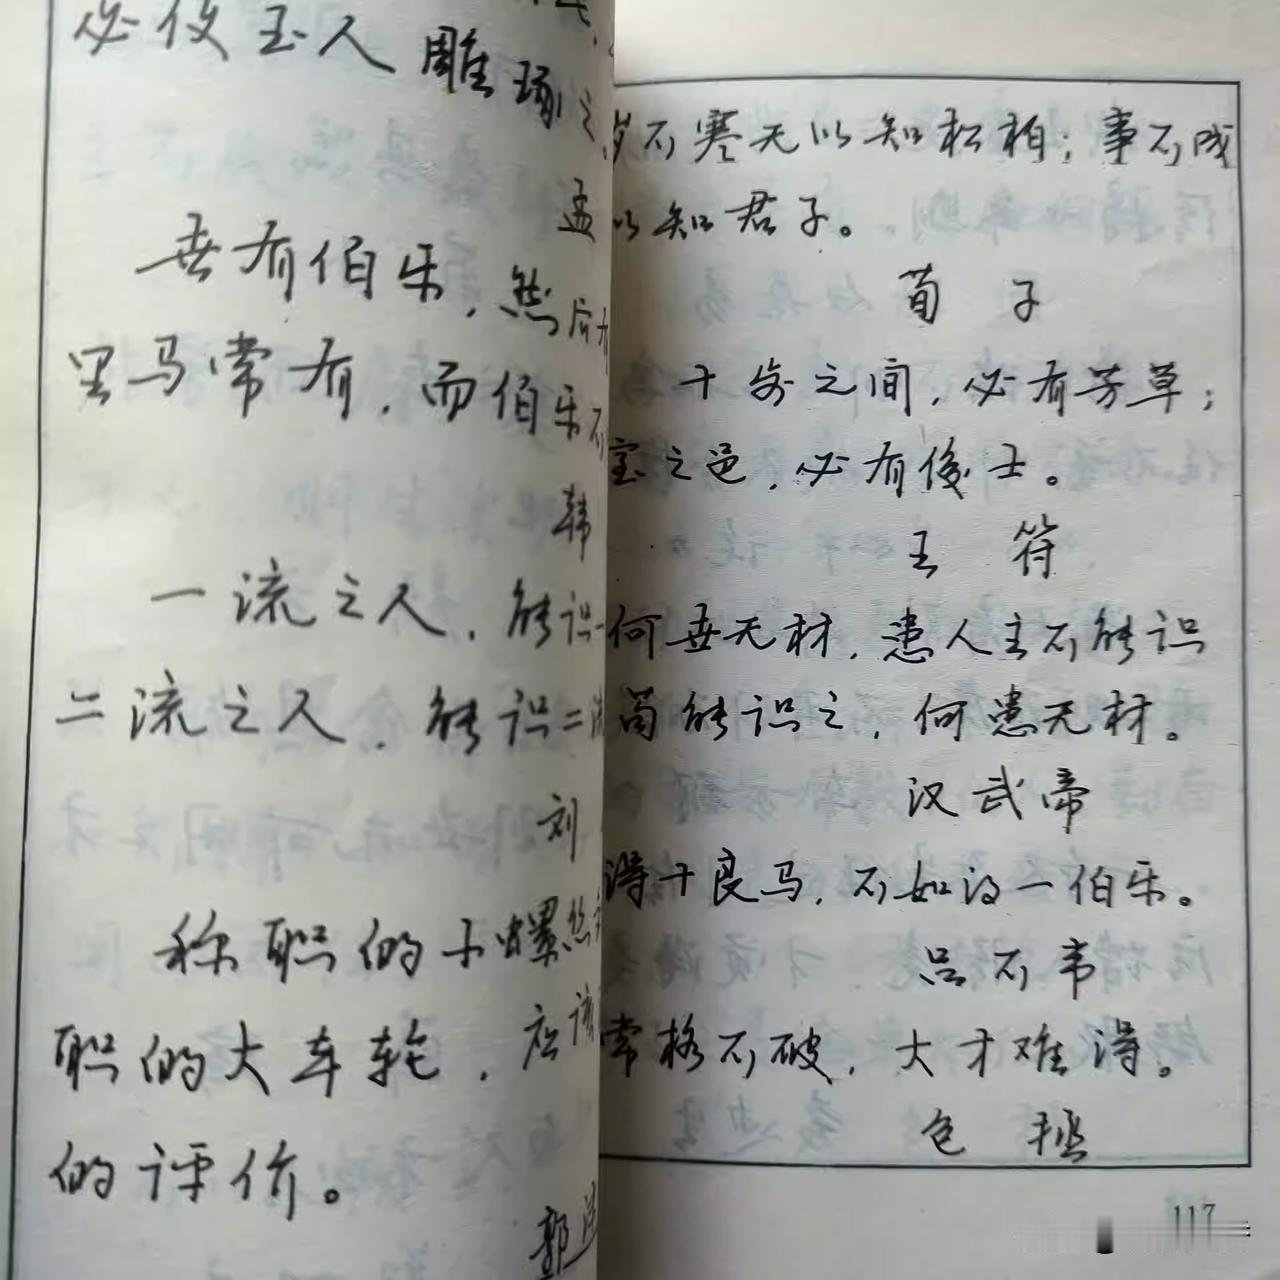 必使玉人雕琢之
孟
世有伯乐，然后
里马常有，而伯乐不
韩
一流之人，能识一
二流之人，能识二流
刘
称职的小螺丝
职的大车轮，应该
的评价。
郭
岁不寒无以知松柏；事不成
以知君子。
荀 子
十步之间，必有芳草；
室之邑，必有俊士。
王 符
何世无材，患人主不能识
苟能识之，何患无材。
汉武帝
得十良马，不如得一伯乐。
吕不韦
常格不破，大才难得。
包 拯
117